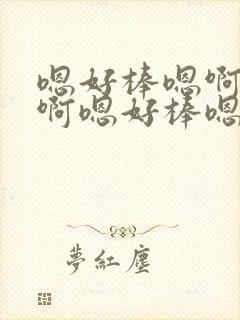 嗯好棒嗯啊
啊嗯好棒嗯
夢紅塵